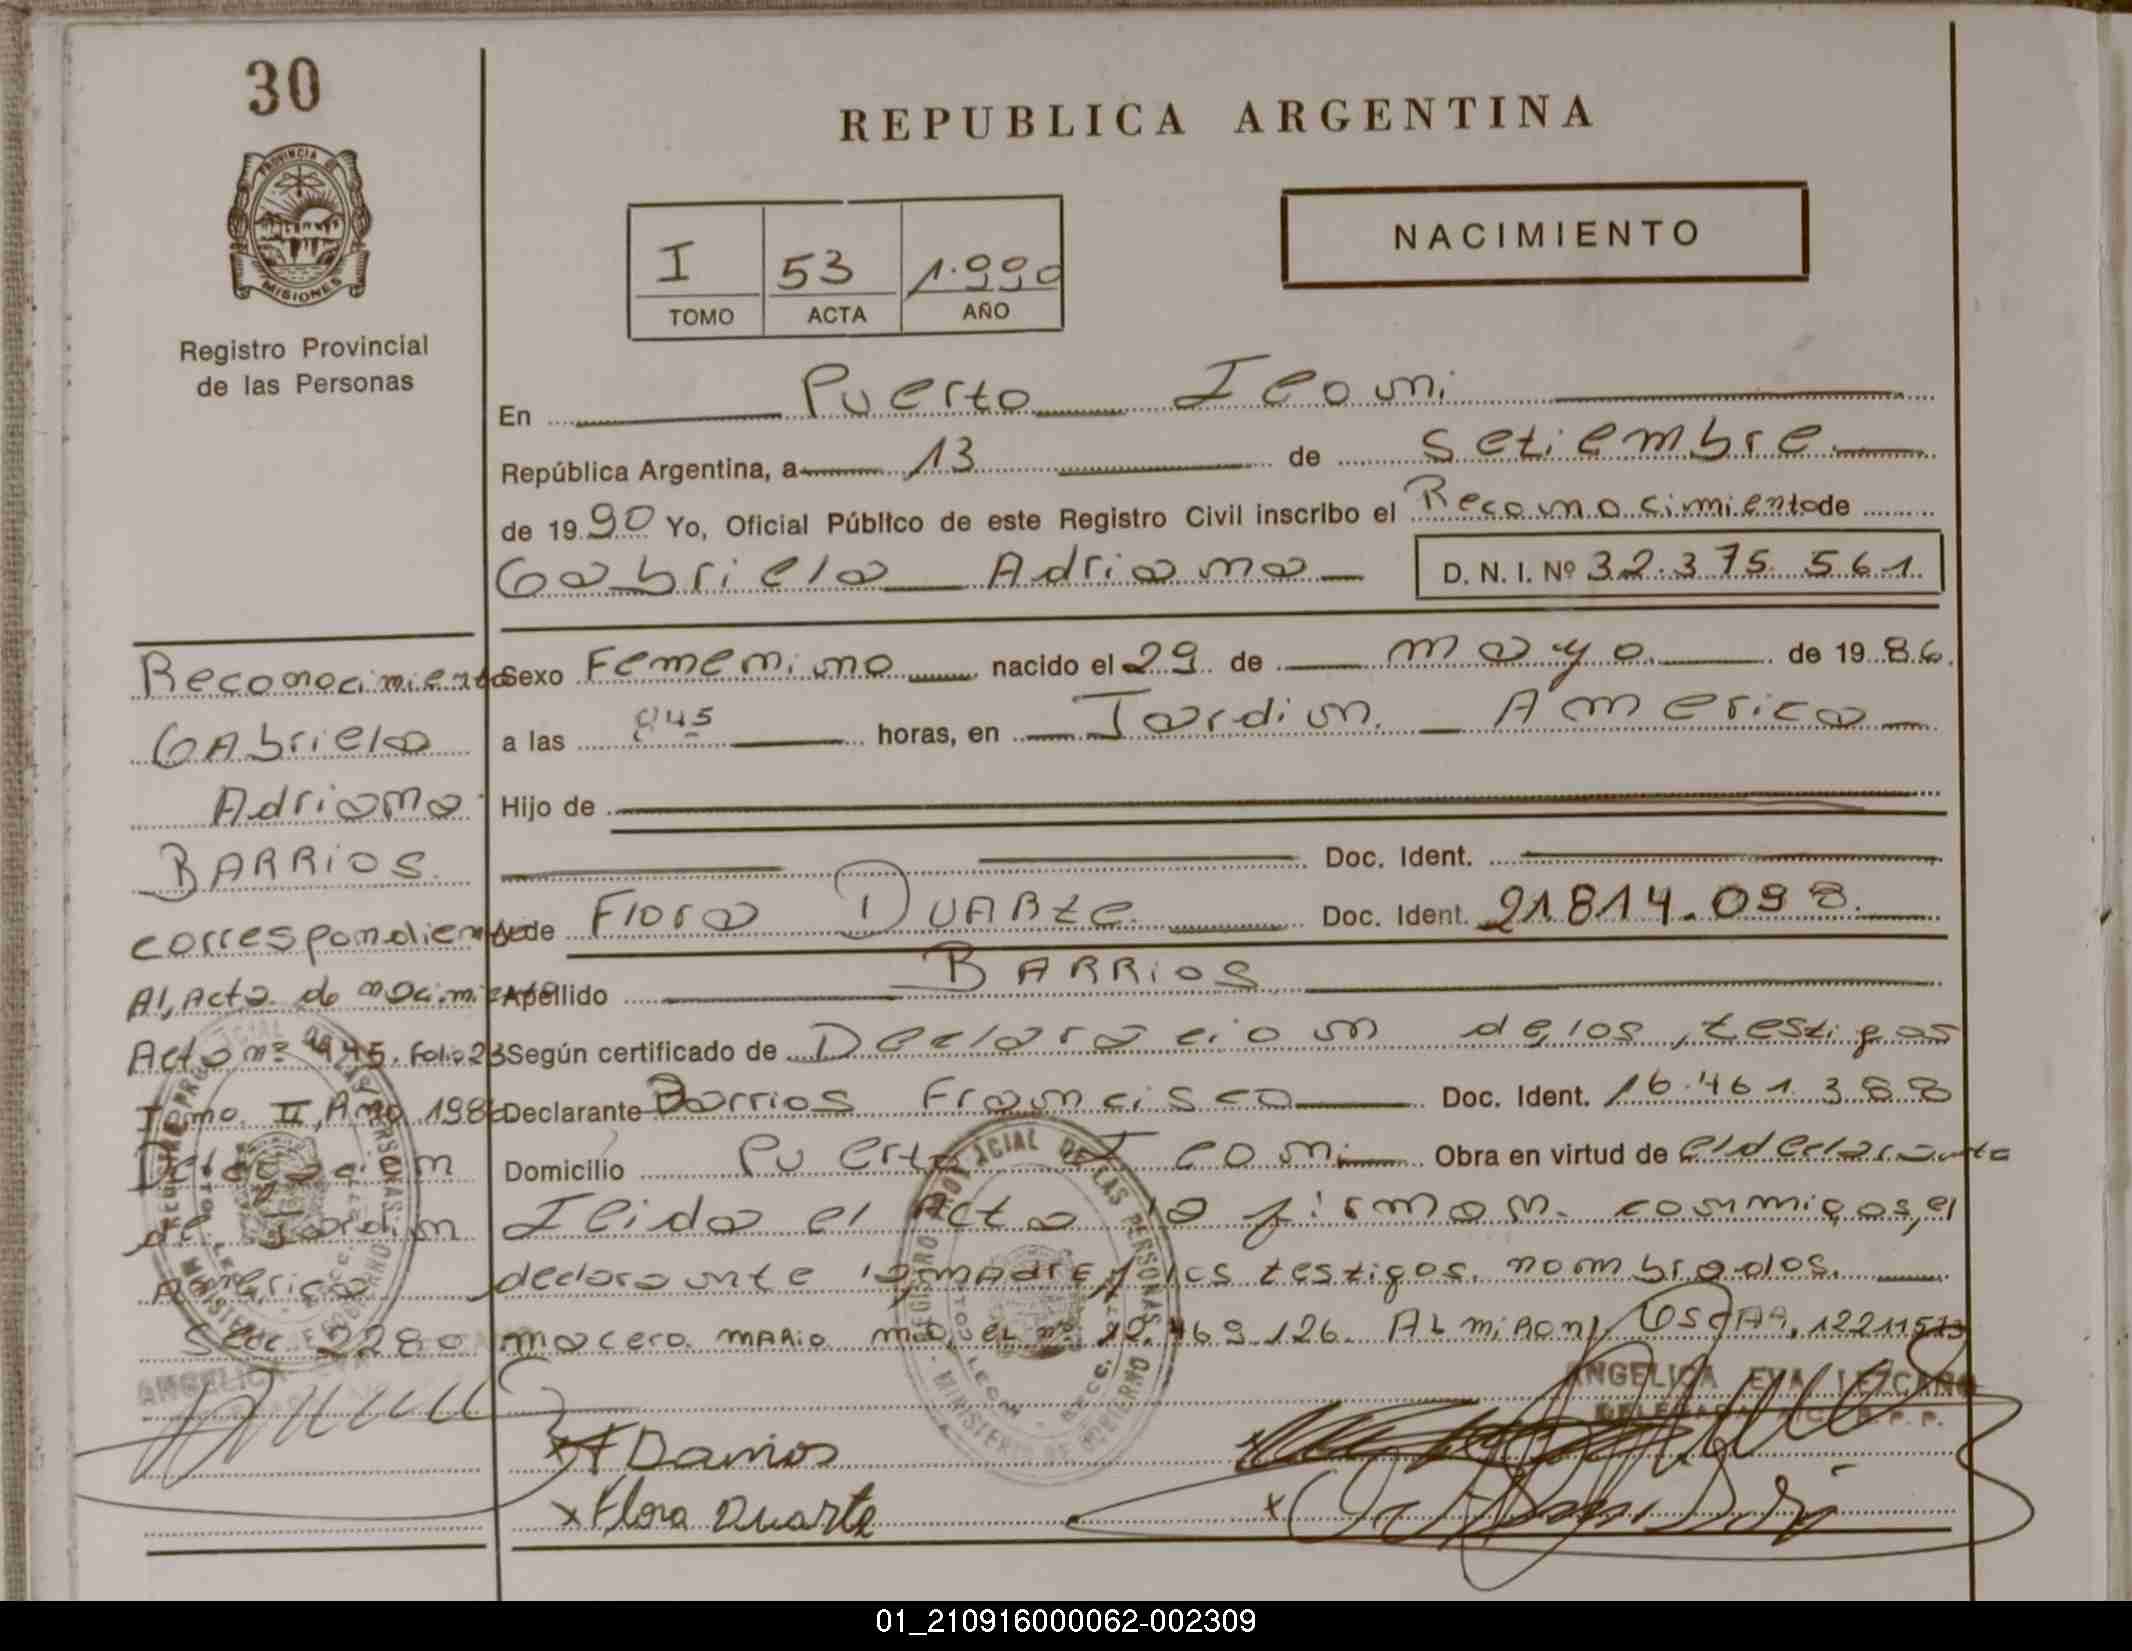 30
PROVINCIA DE
MISIONES
Registro Provincial
de las Personas
REPUBLICA ARGENTINA
NACIMIENTO
I 53 1.990
TOMO ACTA AÑO
En Puerto Leoni
República Argentina, a 13 de Setiembre
de 1990 Yo, Oficial Público de este Registro Civil inscribo el Reconocimiento de
Gabriela Adriana D. N. I. Nº 32.375.561.
Sexo Femenino nacido el 29 de mayo de 1986.
a las 845 horas, en Jardin America
Hijo de
Doc. Ident.
y de Flora DUARTE Doc. Ident. 21814.098.
Apellido BARRIOS
Según certificado de Declaracion de los testigos
Declarante Barrios Francisco Doc. Ident. 16.461.388
Domicilio Puerto Leoni Obra en virtud de el declarante
Leida el Acta la firman conmigos, el
declarante la madre y los testigos nombrados.
MARIO 126. ALMIRON OSCAR, 12211573
Reconocimiento
GAbriela
Adriana
BARRIOS
correspondiente
Al, Acta de nacimiento
Acta nº 445. Folio 23
Tomo II, Año 1986
Delegacion
del Jardin
America
Secc 2280
ANGELICA
ANGELICA EVA LEZCANO
DELEGADA
REGISTRO PROVINCIAL DE LAS PERSONAS
MINISTERIO DE GOBIERNO
x Flora Duarte
01_210916000062-002309